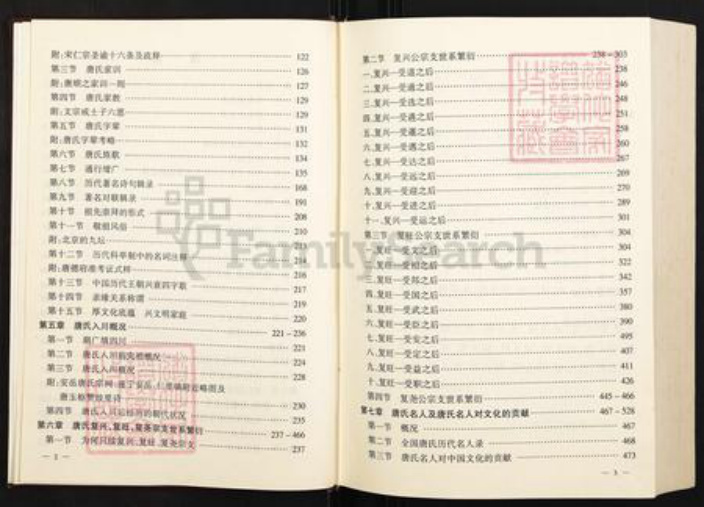 附:宋仁宗圣谕十六条及疏释 122
第三节 唐氏家训 126
附:唐顺之家训一则 127
第四节 唐氏家教 129
附:文宗戒士子六愿 129
第五节 唐氏字辈 131
附:唐氏字辈考略 132
第六节 唐氏族歌 134
第七节 通行增广 135
第八节 历代著名诗句辑录 168
第九节 著名对联辑录 191
第十节 祖先崇拜的形式 208
第十一节 敬祖风俗 210
附:北京的九坛 213
第十二节 历代科举制中的名词注释 214
附:唐德府准考证式样 216
第十三节 中国历代王朝兴衰四字歌 217
第十四节 亲缘关系称谓 219
第十五节 厚文化底蕴 兴文明家庭 220
第五章 唐氏入川概况 221－236
第一节 湖广填四川 221
第二节 唐氏入川前先祖概况 224
第三节 唐氏入川概况 228
附:安岳唐氏宗祠
唐玉榕赞族星诗 230
第四节 唐氏入川后经历的朝代状况 235
第六章 唐氏复兴、复旺、复尧宗支世系繁衍 237－466
第一节 为何只续复兴、复旺、复尧宗支 237
— 2 —
第二节 复兴公宗支世系繁衍 238－303
一、复兴—受道之后 238
二、复兴—受通之后 246
三、复兴—受选之后 248
四、复兴—受遇之后 251
五、复兴—受暹之后 258
六、复兴—受遇之后 260
七、复兴—受达之后 267
八、复兴—受远之后 269
九、复兴—受迎之后 270
十、复兴—受进之后 289
十一、复兴—受运之后 301
第三节 复旺公宗支世系繁衍 304
一、复旺—受文之后 304
二、复旺—受相之后 322
三、复旺—受邦之后 342
四、复旺—受国之后 357
五、复旺—受武之后 380
六、复旺—受臣之后 390
七、复旺—受安之后 495
八、复旺—受定之后 407
九、复旺—受益之后 411
十、复旺—受职之后 426
第四节 复尧公宗支世系繁衍 445－466
第七章 唐氏名人及唐氏名人对文化的贡献 467－528
第一节 概况 467
第二节 全国唐氏历代名人录 468
第三节 唐氏名人对中国文化的贡献 473
— 3 —
FamilySearch